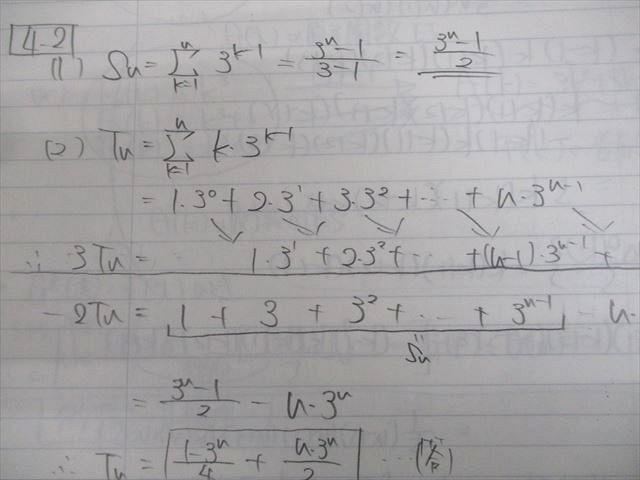 4-2
(1) Sn = Σ_{k=1}^{n} 3^{k-1} = (3^n - 1)/(3 - 1) = (3^n - 1)/2
(2) Tn = Σ_{k=1}^{n} k・3^{k-1}
= 1・3^0 + 2・3^1 + 3・3^2 + … + n・3^{n-1}
∴ 3Tn = 1・3^1 + 2・3^2 + … + (n-1)・3^{n-1} +
- 2Tn = 1 + 3 + 3^2 + … + 3^{n-1} - n・
Sn
= (3^n - 1)/2 - n・3^n
∴ Tn = (1 - 3^n)/4 + (n・3^n)/2 …(答)